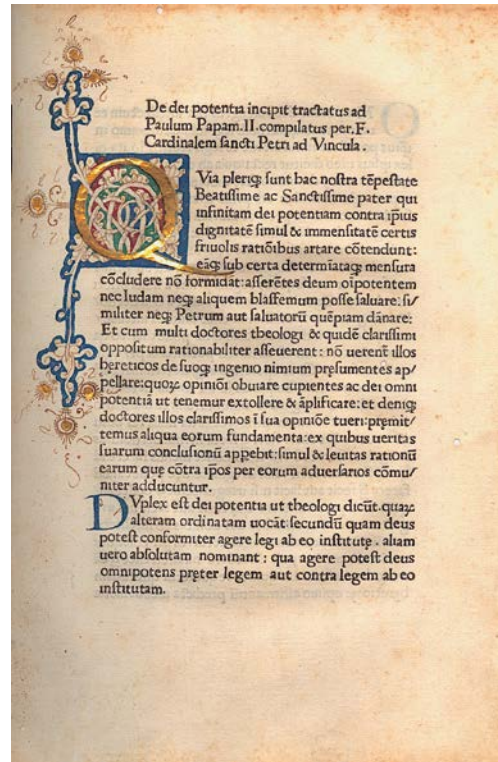 De dei potentia incipit tractatus ad
Paulum Papam.II.compilatus per.F.
Cardinalem sancti Petri ad Vincula.
QVia pleriqꝫ sunt hac nostra tēpestate
Beatissime ac Sanctissime pater qui
infinitam dei potentiam contra ip̄ius
dignitatē simul & immensitatē certis
friuolis ratiōibus artare cōtendunt:
eāqꝫ sub certa determīataqꝫ mensura
cōcludere nō formidāt: asserētes deum oīpotentem
nec Iudam neqꝫ aliquem blasfemum posse saluare: si/
militer neqꝫ Petrum aut saluatorū quēpiam dānare:
Et cum multi doctores theologi & quidē clarissimi
oppositum rationabiliter asseuerent: nō uerent illos
hereticos de suoqꝫ ingenio nimium pręsumentes ap/
pellare: quoꝝ opiniōi obuiare cupientes ac dei omni
potentiā ut tenemur extollere & āplificare: et deniqꝫ
doctores illos clarissimos ī sua opiniōe tueri: pręmit/
temus aliqua eorum fundamenta: ex quibus ueritas
suarum conclusionū apꝑebit: simul & leuitas rationū
earum quę cōtra ip̄os per eorum aduersarios cōmu/
niter adducuntur.
DVplex est dei potentia ut theologi dicūt. quaꝝ
alteram ordinatam uocāt: secundū quam deus
potest conformiter agere legi ab eo institutę. aliam
uero absolutam nominant: qua agere potest deus
omnipotens pręter legem aut contra legem ab eo
institutam.